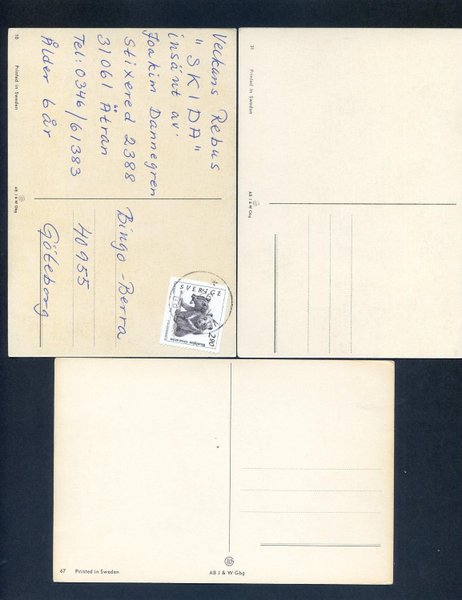 Veckans Rebus
"SKIDA"
insänt av:
Joakim Dannegren
Stixered 2388
31061 Ätran
Tel: 0346/61383
Ålder 6 år
Bingo-Berra
40955
Göteborg
SVERIGE
290
10 Printed in Sweden
AB J & W Gbg
31 Printed in Sweden
AB J & W Gbg
67 Printed in Sweden
AB J & W Gbg